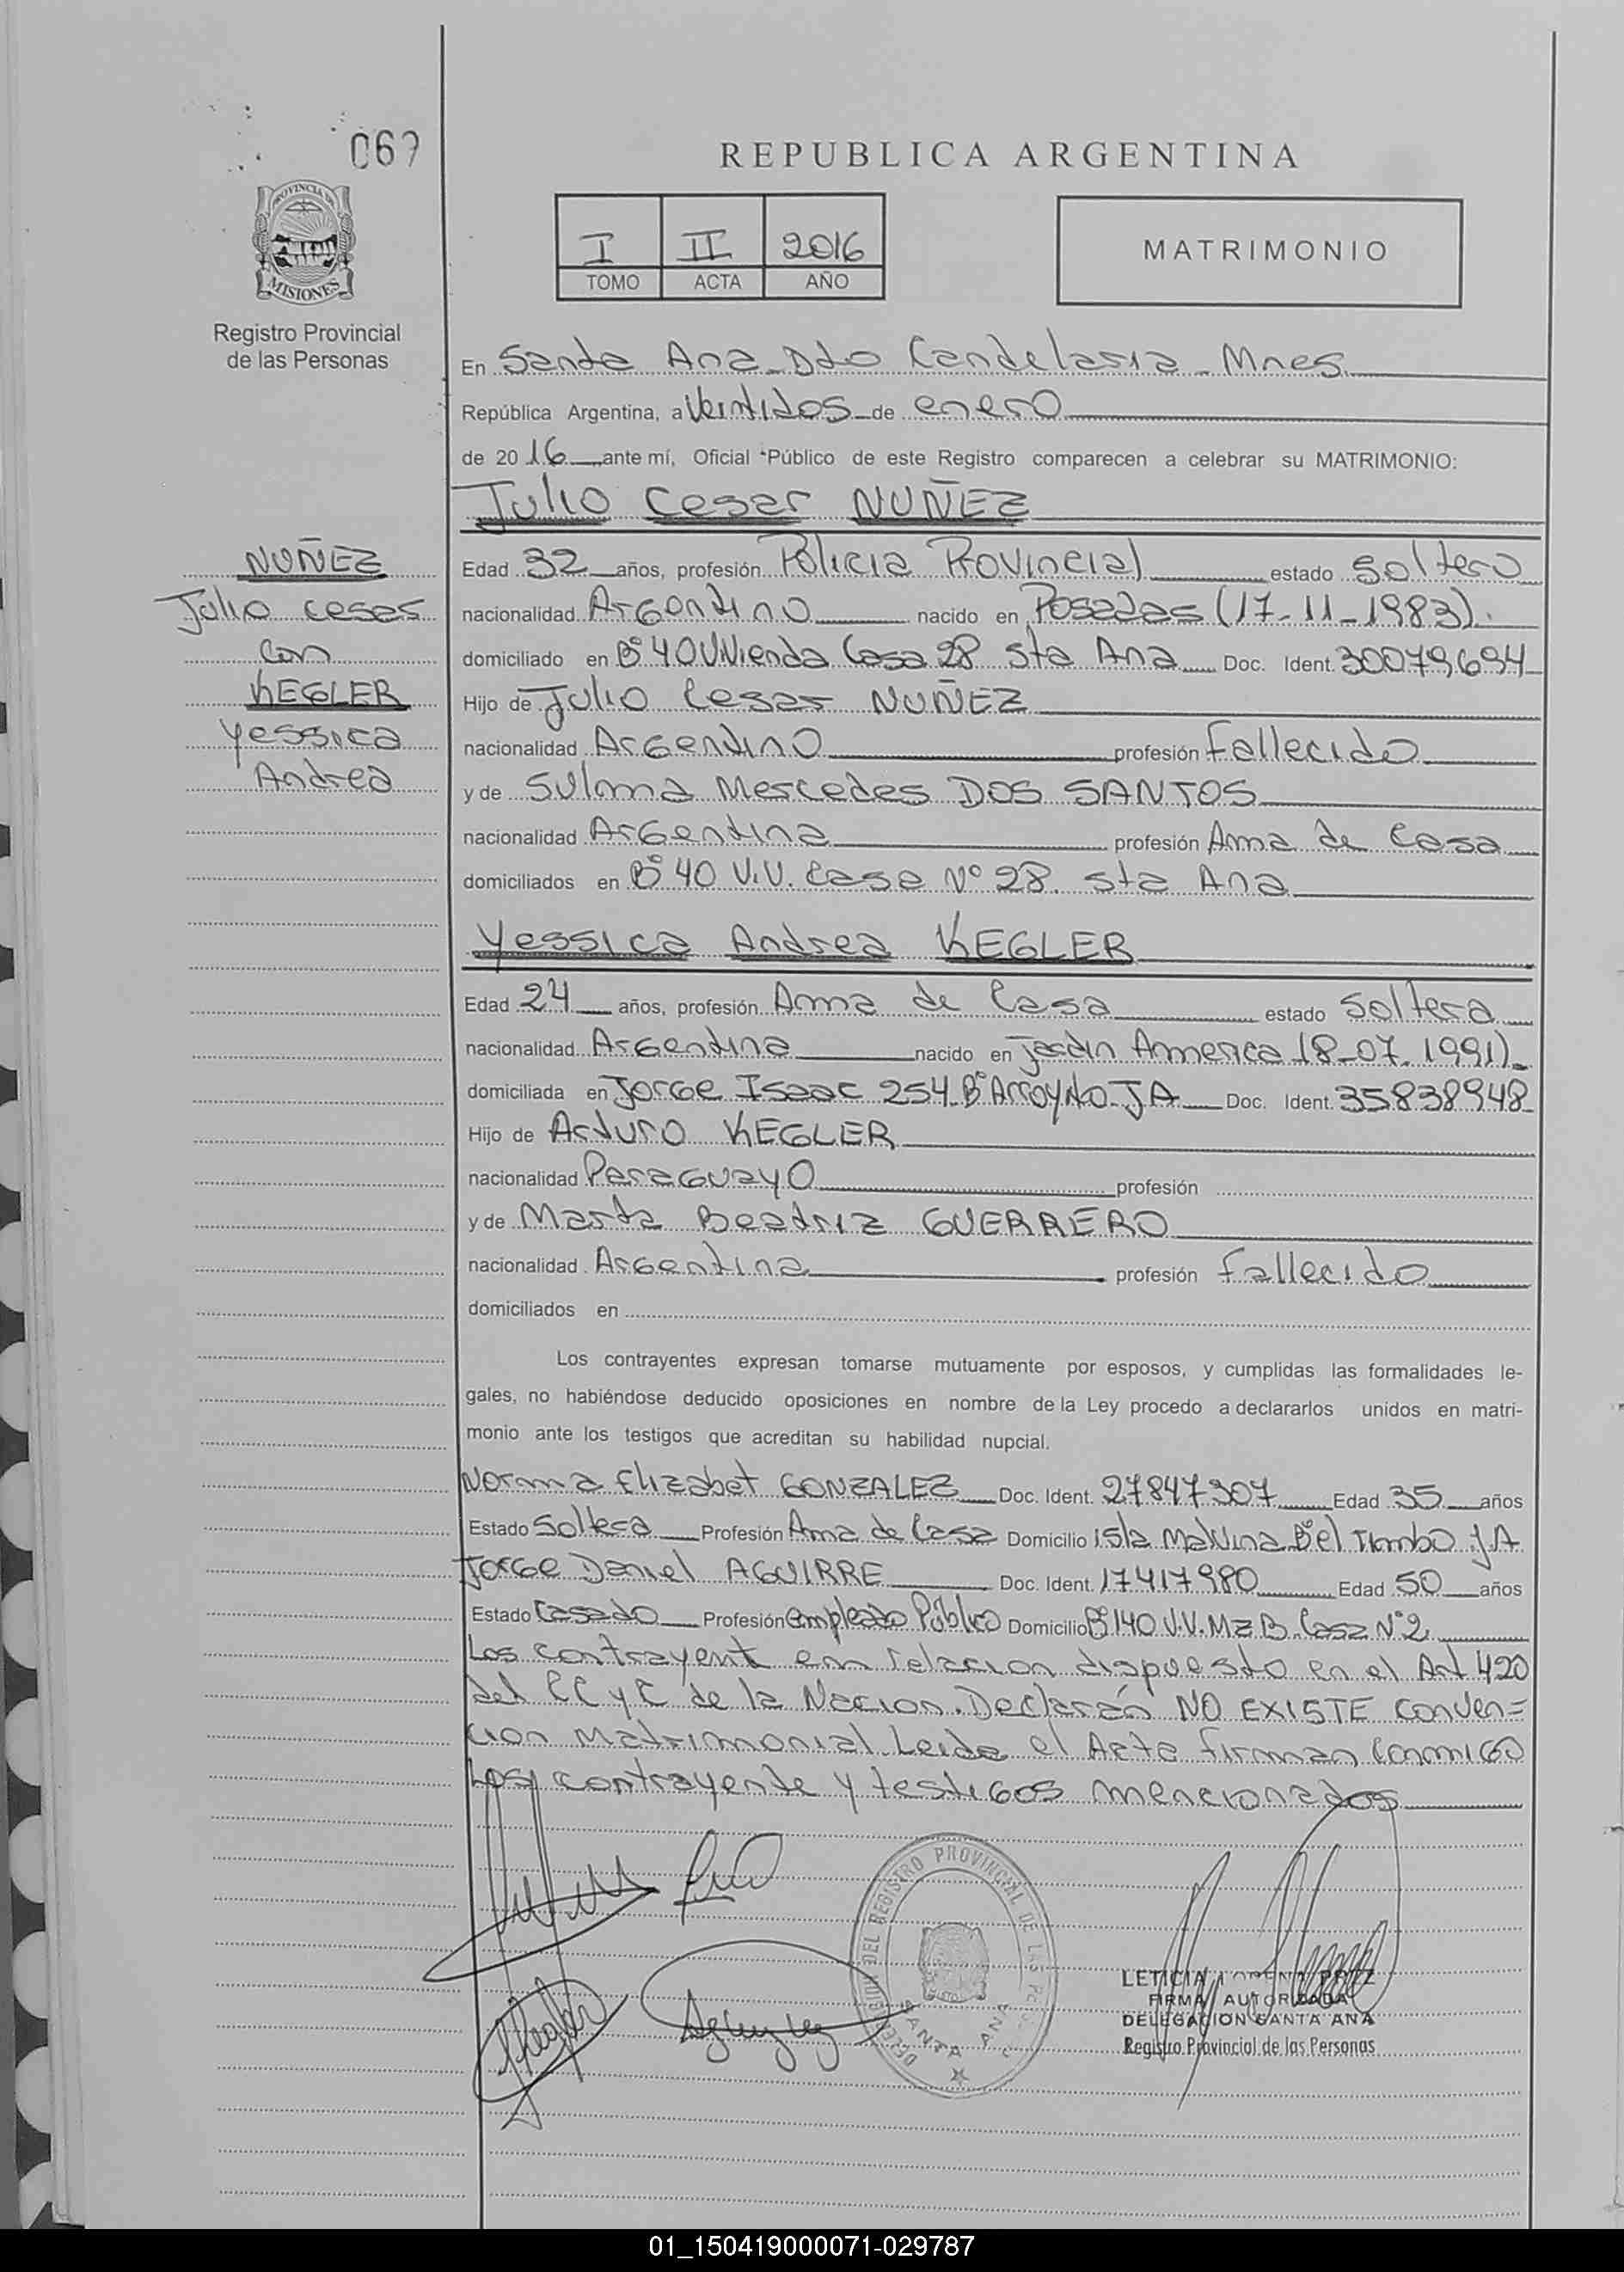 067
REPUBLICA ARGENTINA
PROVINCIA DE
MISIONES
Registro Provincial
de las Personas
I II 2016
TOMO ACTA AÑO
MATRIMONIO
En Santa Ana_Dto Candelaria_Mnes
República Argentina, a Veintidos de enero
de 20 16 ante mí, Oficial Público de este Registro comparecen a celebrar su MATRIMONIO:
Julio Cesar NUÑEZ
NUÑEZ
Julio Cesar
Con
KEGLER
Yessica
Andrea
Edad 32 años, profesión Policia Provincial estado Soltero
nacionalidad Argentino nacido en Posadas (17-11-1983).
domiciliado en B° 40 Vivienda Casa 28 Sta Ana Doc. Ident. 30079694
Hijo de Julio Cesar NUÑEZ
nacionalidad Argentino profesión Fallecido
y de Sulma Mercedes DOS SANTOS
nacionalidad Argentina profesión Ama de Casa
domiciliados en B° 40 V.V. Casa N° 28. Sta Ana
Yessica Andrea KEGLER
Edad 24 años, profesión Ama de Casa estado Soltera
nacionalidad Argentina nacido en Jardin America 18-07-1991)
domiciliada en Jorge Isaac 254 B° Arroyito JA Doc. Ident. 35838948
Hijo de Arturo KEGLER
nacionalidad Paraguayo profesión
y de Marta Beatriz GUERRERO
nacionalidad Argentina profesión Fallecido
domiciliados en
Los contrayentes expresan tomarse mutuamente por esposos, y cumplidas las formalidades le-
gales, no habiéndose deducido oposiciones en nombre de la Ley procedo a declararlos unidos en matri-
monio ante los testigos que acreditan su habilidad nupcial.
Norma Elizabet GONZALEZ Doc. Ident. 27847307 Edad 35 años
Estado Soltera Profesión Ama de Casa Domicilio Isla Malvina B° el Timbo JA
Jorge Daniel AGUIRRE Doc. Ident. 17417980 Edad 50 años
Estado Casado Profesión Empleado Público Domicilio B° 140 V.V. Mz B Casa N° 2
Los contrayent em relacion dispuesto en el Art 420
del CC y C de la Nacion. Declaran NO EXISTE Conven=
cion Matrimonial. Leida el Acta firman conmigo
Los contrayente y testigos mencionados
DELEGACION DEL REGISTRO PROVINCIAL DE LAS
SANTA ANA
LETICIA
FIRMA AUTORIZADA
DELEGACION SANTA ANA
Registro Provincial de las Personas
01_150419000071-029787